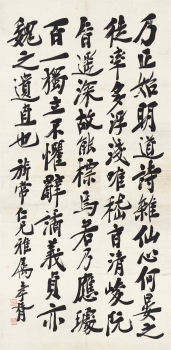 乃正始明道詩雜仙心何晏之
徒率多浮淺唯嵇旨清峻阮
旨遙深故能標焉若乃應璩
百一獨立不懼辭譎義貞亦
魏之遺直也 旂常仁兄雅屬 孝胥